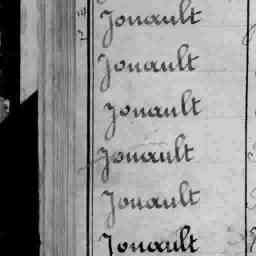 Jouault
Jouault
Jouault
Jouault
Jouault
Jouault